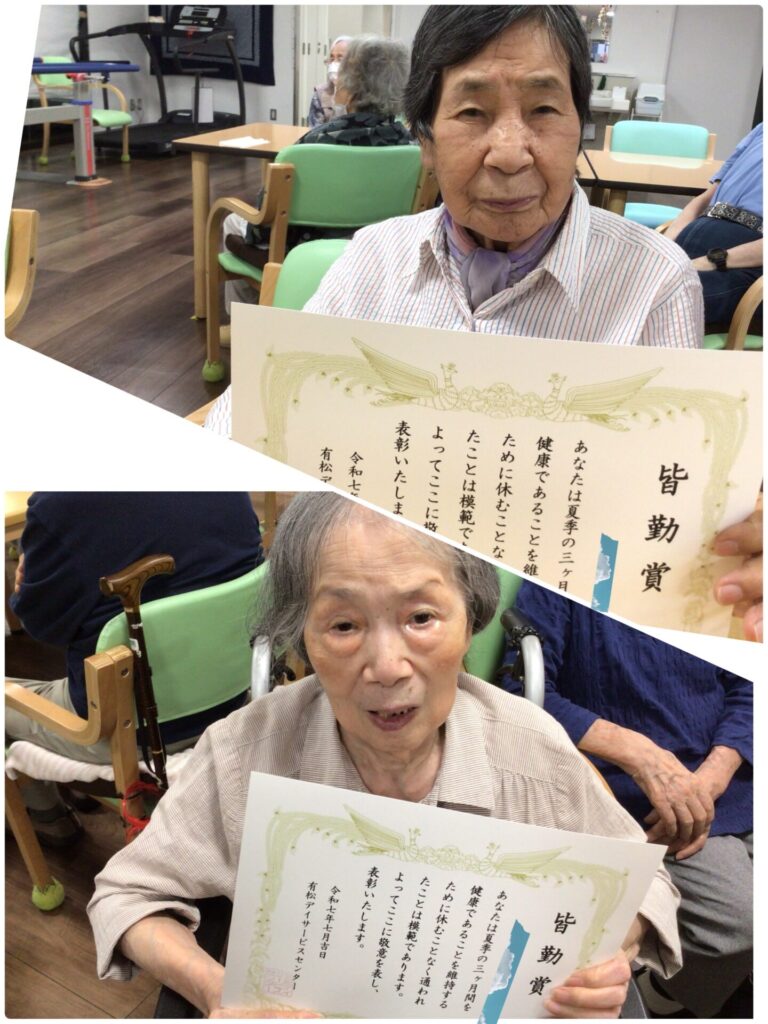 皆勤賞
あなたは夏季の三ヶ月
健康であることを維
ために休むことな
たことは模範で
よってここに敬
表彰いたしま
令和七
有松デイ
皆勤賞
あなたは夏季の三ヶ月間を
健康であることを維持する
ために休むことなく通われ
たことは模範であります。
よってここに敬意を表し、
表彰いたします。
令和七年七月吉日
有松デイサービスセンター